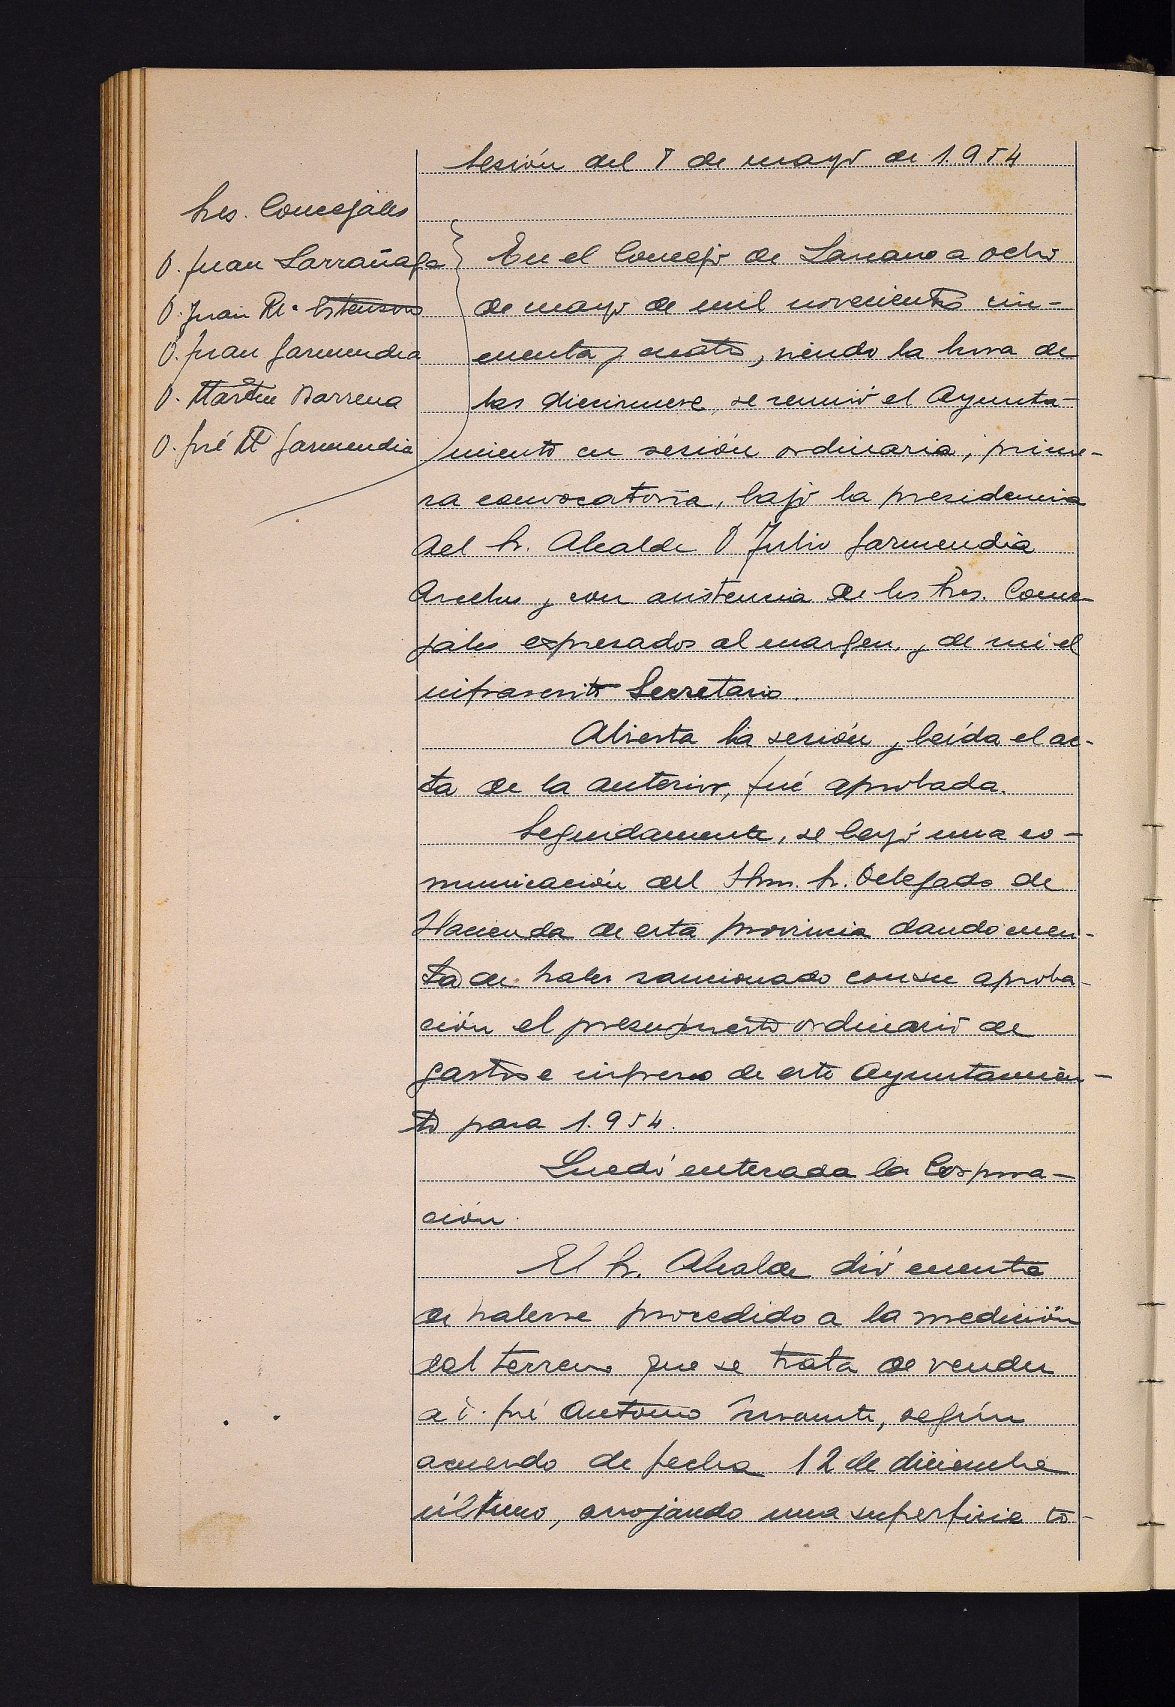 Sesión del 8 de mayo de 1.954
Sres. Concejales
D. Juan Larrañaga
D. Juan Mª Ostensoro
D. Juan Garmendia
D. Martín Barrena
D. José Mª Garmendia
En el Concejo de Lazcano a ocho
de mayo de mil novecientos cin-
cuenta y cuatro, siendo la hora de
las diecinueve, se reunió el Ayunta-
miento en sesión ordinaria, prime-
ra convocatoria, bajo la presidencia
del Sr. Alcalde D Julio Garmendia
y con asistencia de los Sres. Conce-
jales expresados al margen, y de mi el
infrascrito Secretario.
Abierta la sesión y leída el ac-
ta de la anterior, fué aprobada.
Seguidamente, se leyó una co-
municación del Iltmo. Sr. Delegado de
Hacienda de esta provincia dando cuen-
ta de haber sancionado con su aproba-
ción el presupuesto ordinario de
gastos e ingresos de este Ayuntamien-
to para 1.954.
Quedó enterada la Corpora-
ción.
El Sr. Alcalde dió cuenta
de haberse procedido a la medición
del terreno que se trata de vender
a D. José Antonio según
acuerdo de fecha 12 de diciembre
último, arrojando una superficie to-